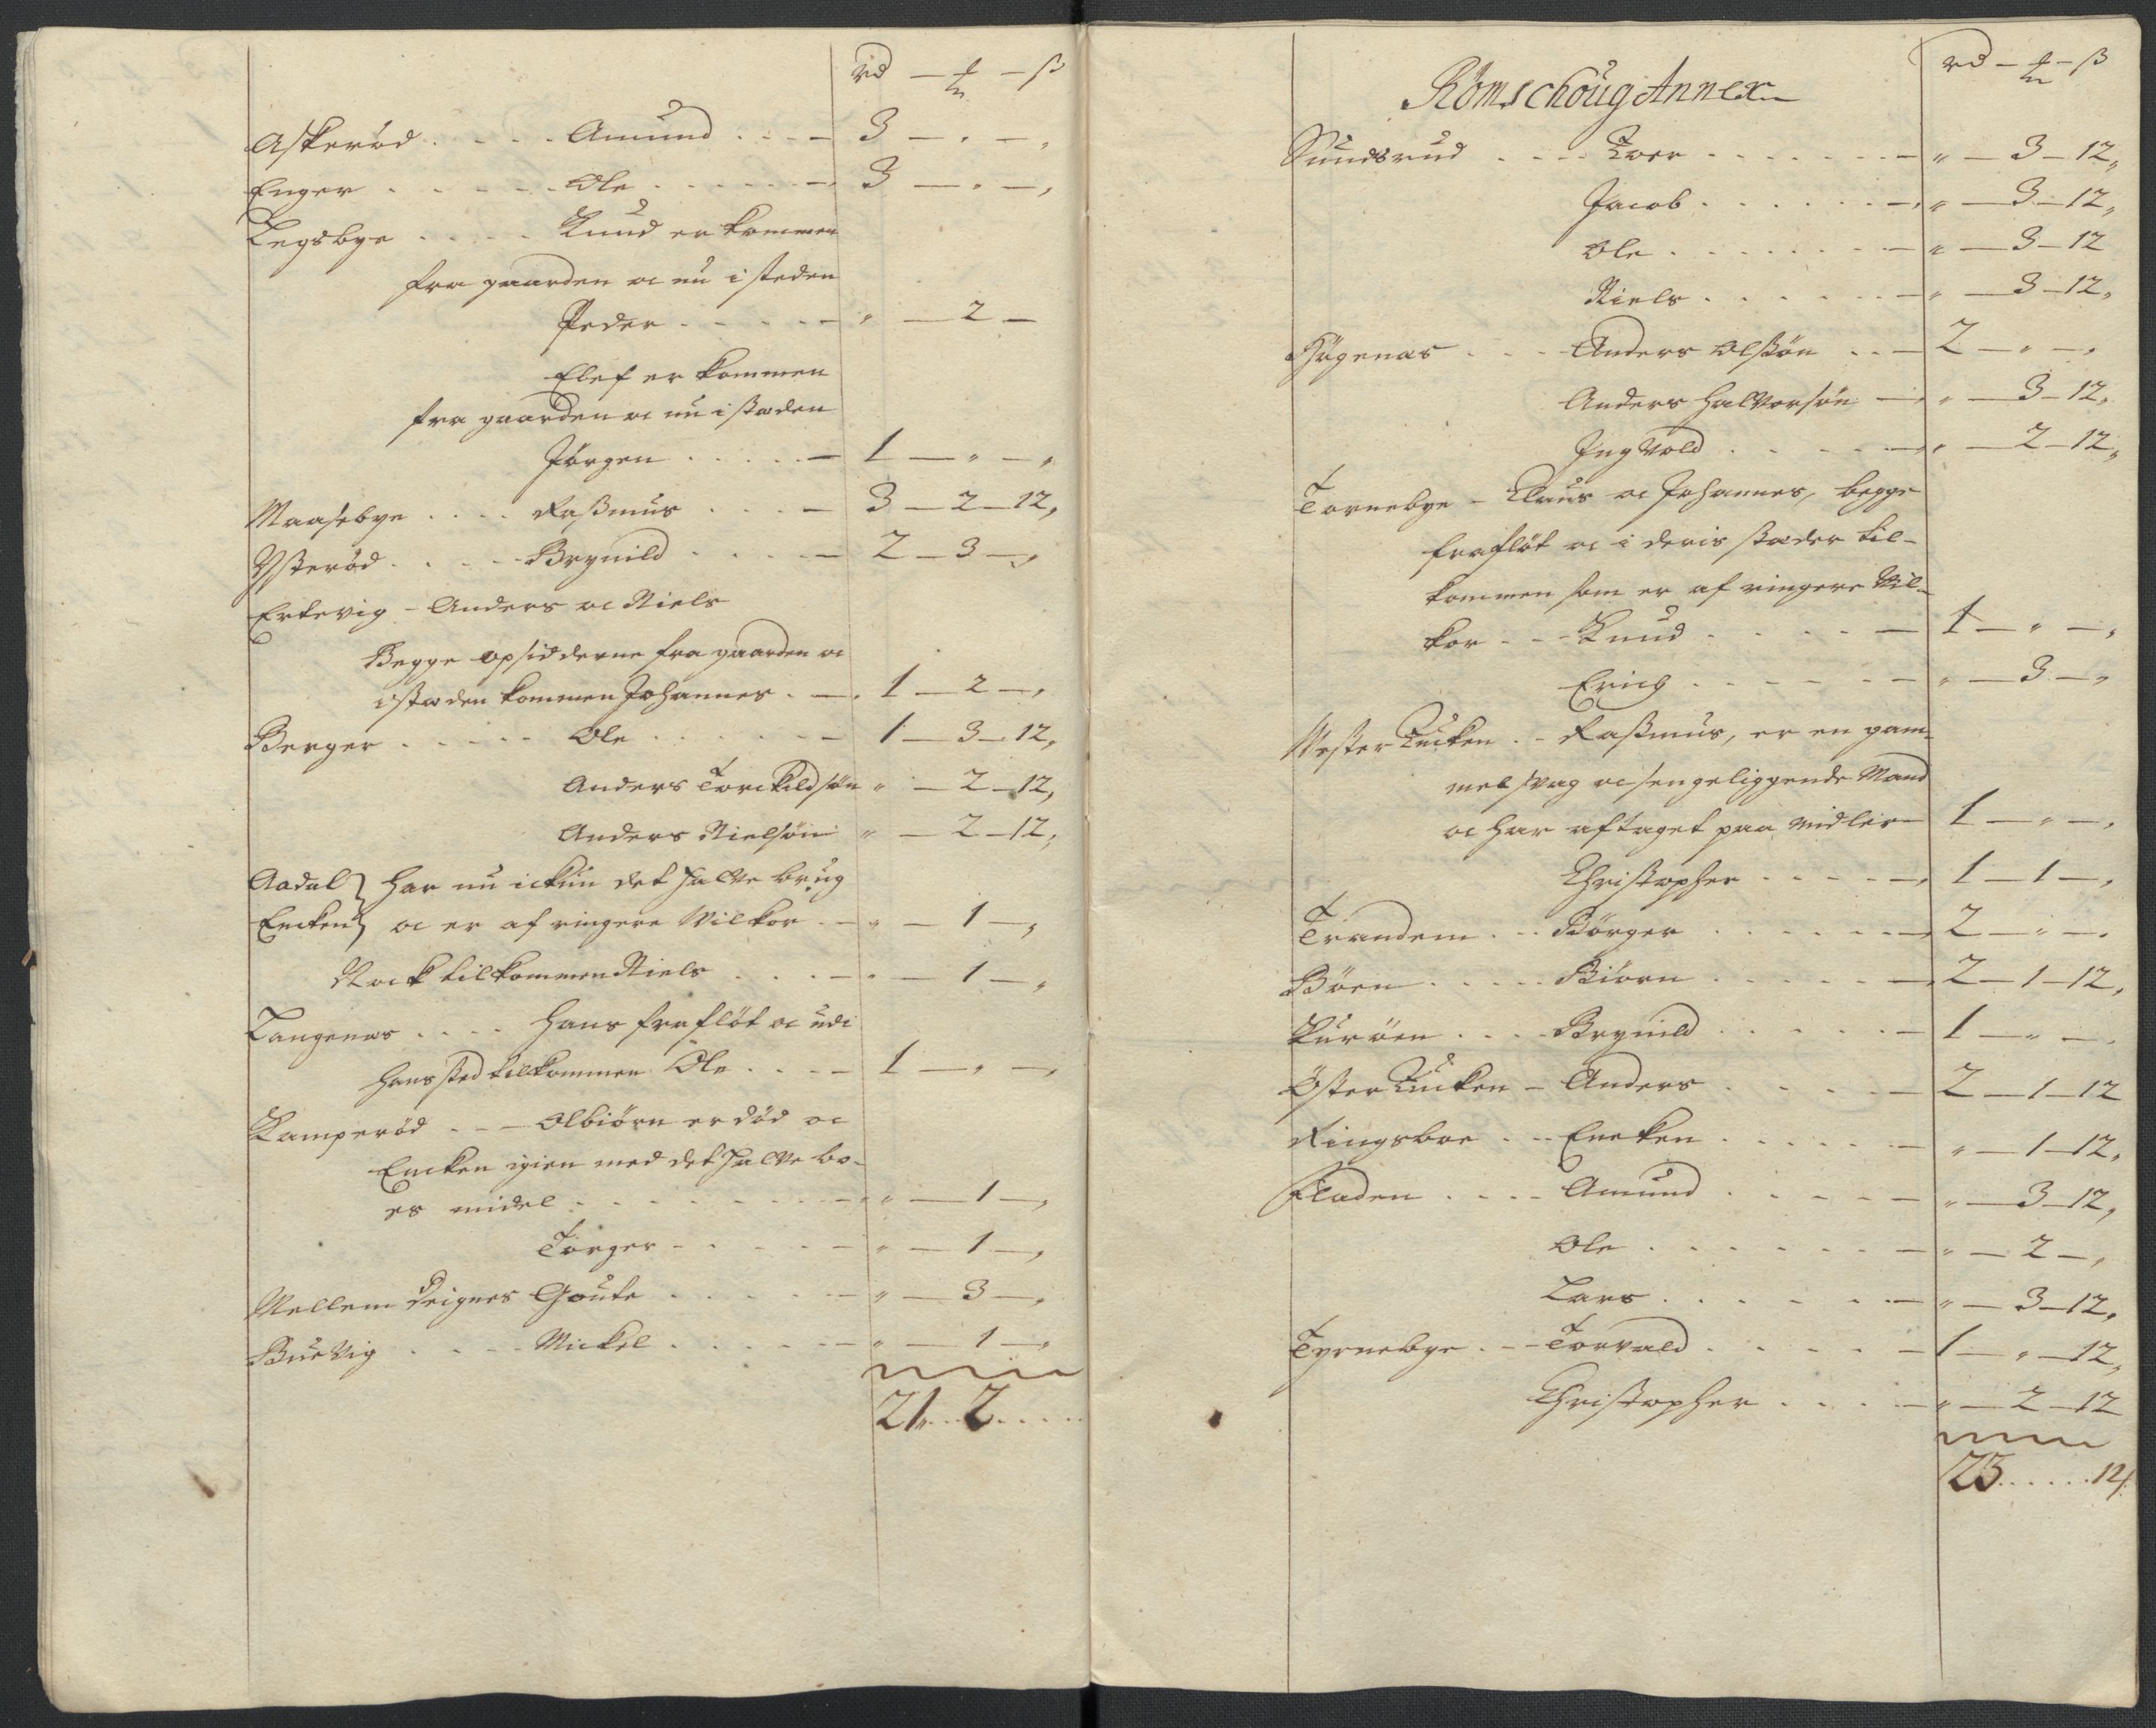 rd — ₰ — ß
Askerød . . . . Amund . . . — 3 — . — ,
Enger . . . . . Ole . . . . . — 3 — . — ,
Legsbye . . . . . Knud er kommen
fra gaarden oc nu i steden
Peder . . . . . — " — 2 —
Elef er kommen
fra gaarden oc nu i stæden
Jørgen . . . . . — 1 — " — "
Maasebye . . . . Rasmus . . . . — 3 — 2 — 12,
Ysterød . . . . . Brynild . . . . — 2 — 3 — ,
Ertevig - Anders oc Niels
Begge opsidderne fra gaarden oc
i stæden kommen Johannes . — . 1 — 2 — ,
Berger . . . . . Ole . . . . . . — 1 — 3 — 12,
Anders Torckildsøn " — 2 — 12,
Anders Nielsøn " — 2 — 12,
Aadal } har nu ickun det halve brug
Encken } oc er af ringere Vilkor . — " — 1 — ,
Nock tilkommen Niels . . . . — " — 1 — ,
Langenæs . . . . Hans fraflöt oc udi
hans sted tilkommen Ole . . . . — 1 — " — ,
Kamperød . . . — Olbiörn er död oc
Encken igien med det halve bo-
es midel . . . . . . . . — " — 1 — ,
Törger . . . . . — " — 1 — ,
Mellem Deignes Goute . . . . . — " — 3 — ,
Buevig . . . . Mickel . . . . . — " — 1 — "
21 " . 2 . . . . .
rd — ₰ — ß
Römschoüg Annex
Sundsrud . . . . Iver . . . . . . — " — 3 — 12,
Jacob . . . . . . — " — 3 — 12,
Ole . . . . . . . — " — 3 — 12
Niels . . . . . . — " — 3 — 12,
Hügenæs . . . Anders Olssøn . . — 2 — " — ,
Anders Halvorsøn — " — 3 — 12,
Ingvold . . . . . — " — 2 — 12,
Tornebye — Claus oc Johannes, begge
fraflöt oc i deris stæder til-
kommen som er af ringere Vil-
kor . . - Knud . . . . . — 1 — " — ,
Erich . . . . . . — " — 3 — ,
Vester Lucken . . Rasmus, er en gam-
mel svag oc sengeliggende Mand
oc har aftaget paa midler — 1 — " — ,
Christopher . . . . . — 1 — 1 — ,
Trandem . . . Børger . . . . . . — 2 — " — .
Böen . . . . . Biörn . . . . . . — 2 — 1 — 12,
Kuröen . . . . Brynild . . . . . — 1 — " — .
Öster Lucken — Anders . . . . — 2 — 1 — 12
Ringsboe . . . Encken . . . . . . — " — 1 — 12,
Fladen . . . . Amund . . . . . — " — 3 — 12,
Ole . . . . . . . — " — 2 — ,
Lars . . . . . . — " — 3 — 12,
Tyrnebye . . — Torvald . . . . . — 1 — " — 12,
Christopher . . . . — " — 2 — 12
25 . . . . . 12